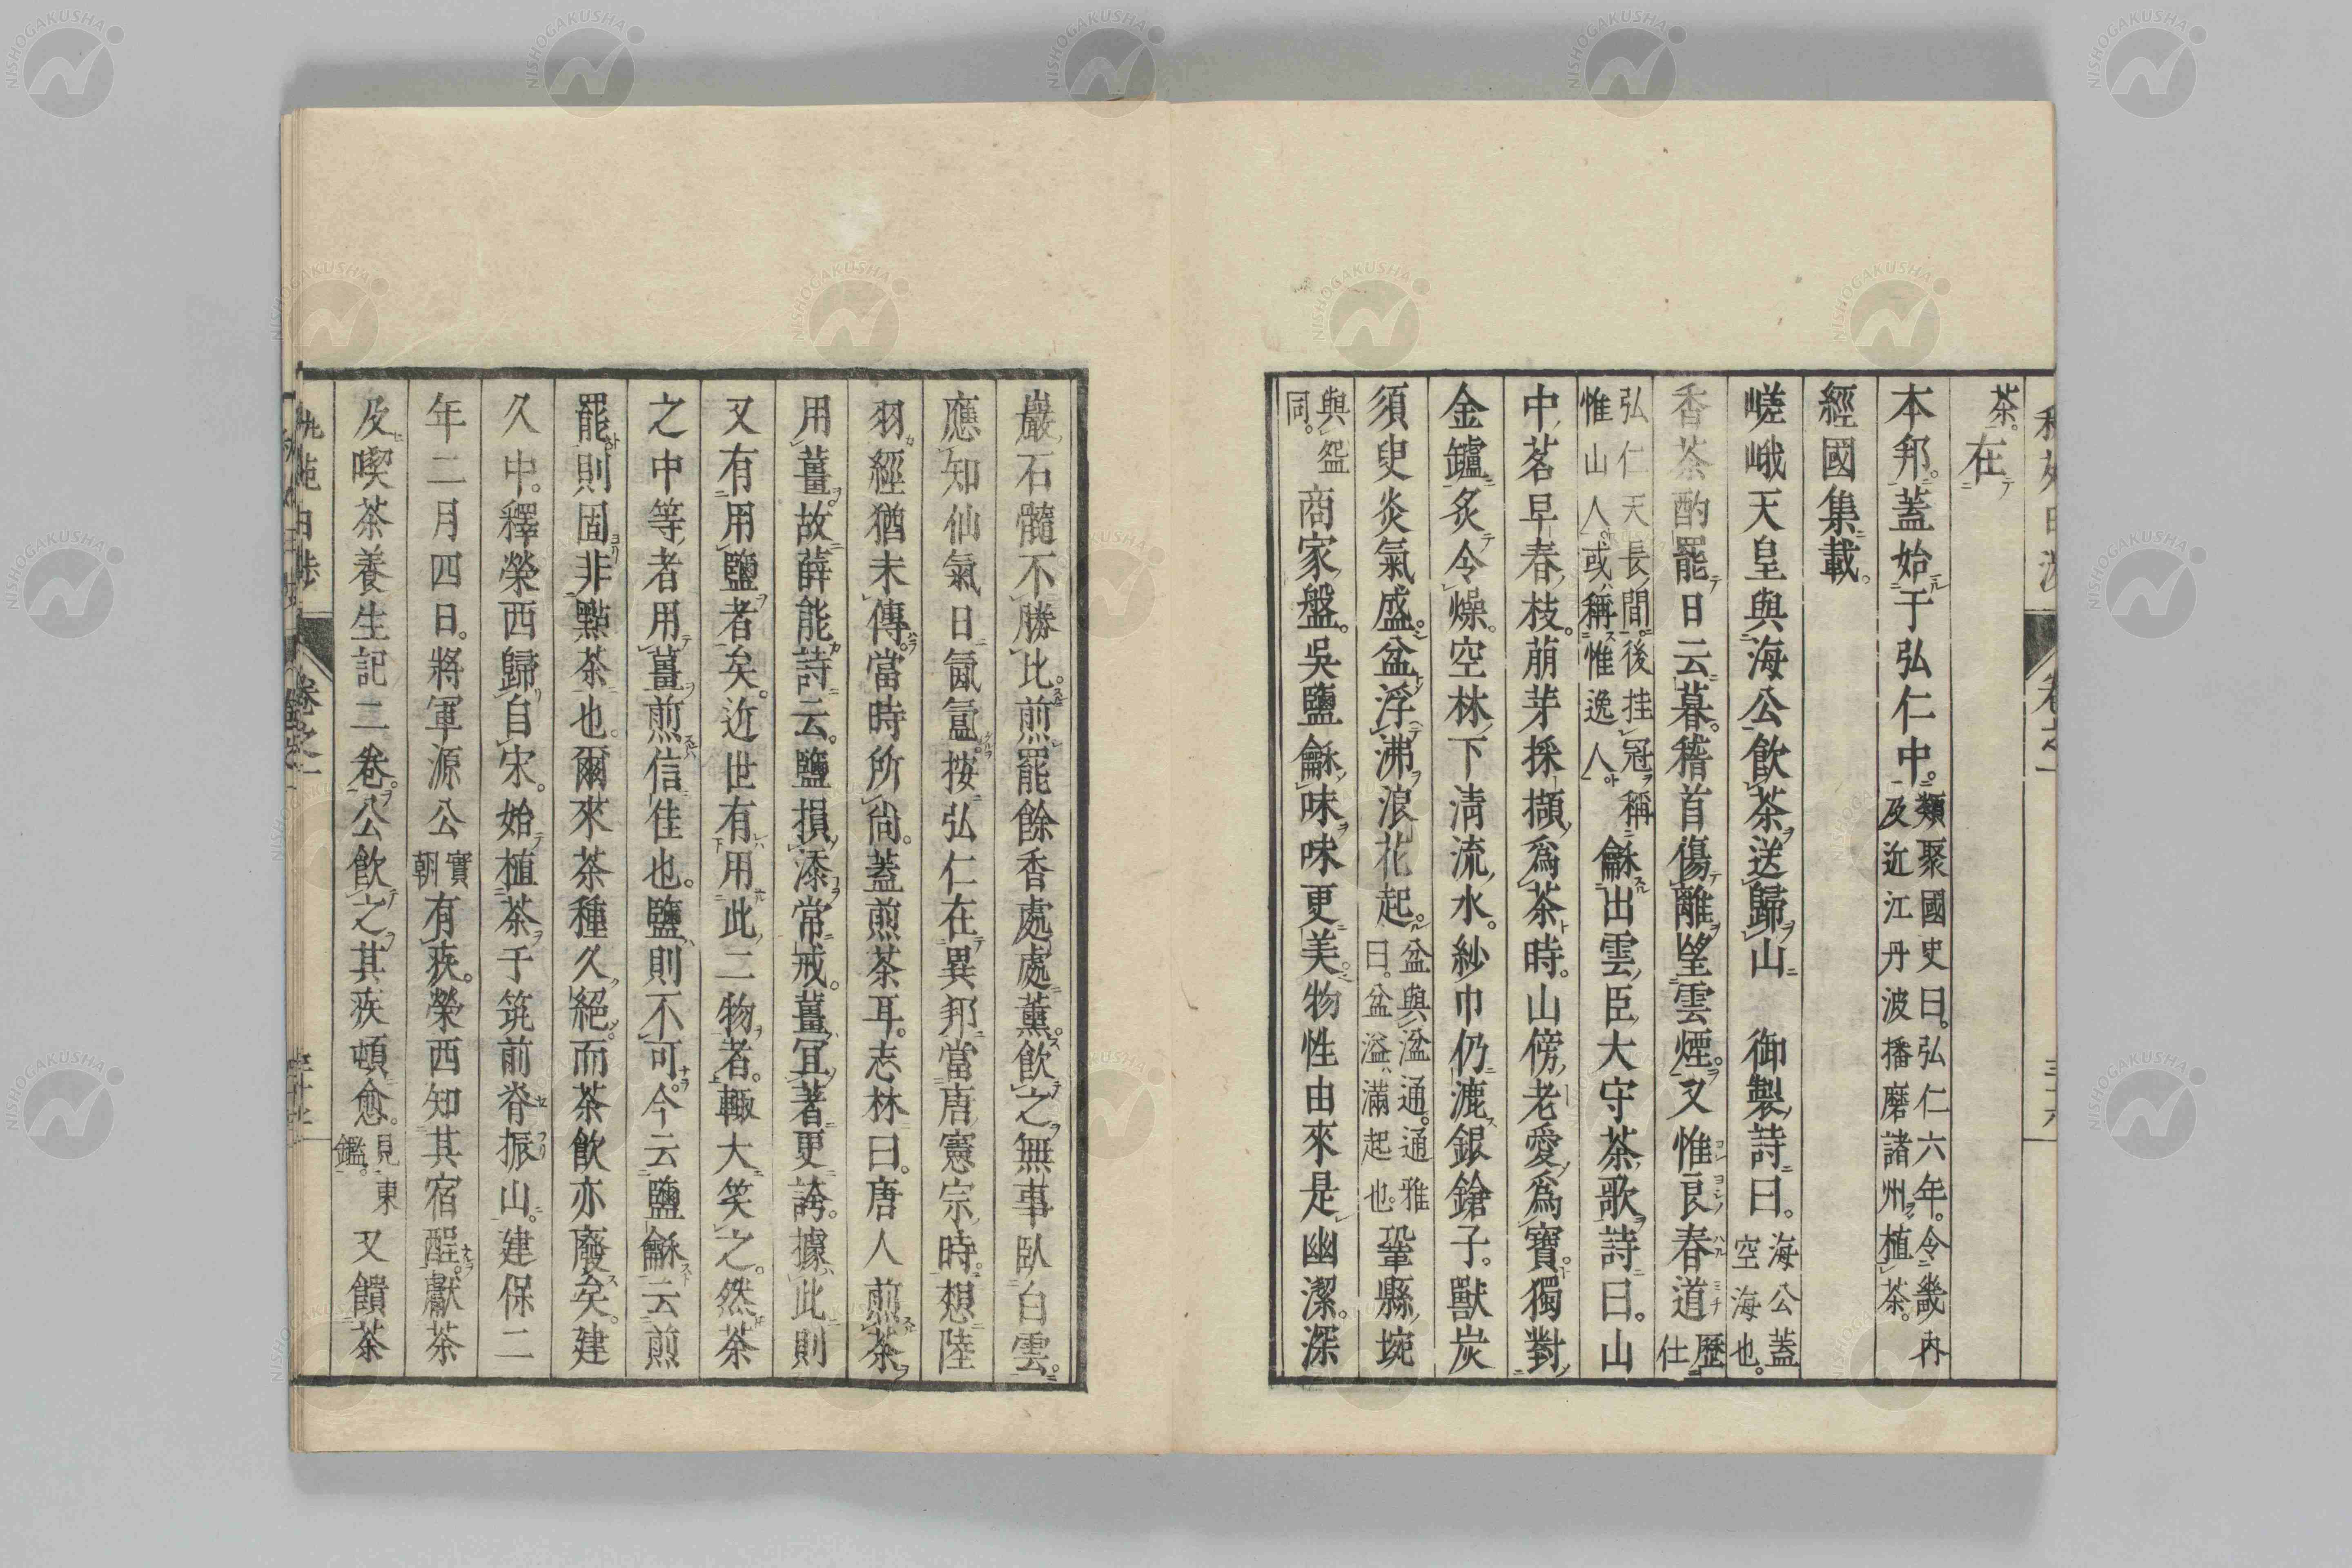 茶。在
本邦。蓋始于弘仁中。類聚國史曰。弘仁六年。令畿內及近江丹波播磨諸州植茶。
經國集載。
嵯峨天皇與海公飲茶送歸山 御製詩曰。海公蓋空海也。
香茶酌罷日云暮。稽首傷離望雲煙。又惟良春道歷仕
弘仁天長間。後挂冠稱惟山人。或稱惟逸人。龢出雲臣大守茶歌詩曰。山
中茗早春枝。萠芽採擷爲茶時。山傍老愛爲寶。獨對
金鑪炙令燥。空林下淸流水。紗巾仍漉銀鎗子。獸炭
須臾炎氣盛。盆浮沸浪花起。盆與湓通。通雅曰。盆溢滿起也。鞏縣埦
與盌同。商家盤。吳鹽龢味味更美。物性由來是幽潔。深
巖石髓不勝比。煎罷餘香處處薰。飲之無事臥白雲。
應知仙氣日氤氳。按弘仁在異邦當唐憲宗時。想陸
羽經猶未傳。當時所尙。蓋煎茶耳。志林曰。唐人煎茶
用薑。故薛能詩云。鹽損添常戒。薑宜著更誇。據此則
又有用鹽者矣。近世有用此二物者。輙大笑之。然茶
之中等者用薑煎信佳也。鹽則不可。今云鹽龢云煎
罷則固非點茶也。爾來茶種久絕。而茶飲亦廢矣。建
久中。釋榮西歸自宋。始植茶于筑前脊振山。建保二
年二月四日。將軍源公實朝有疾。榮西知其宿酲。獻茶
及喫茶養生記二卷。公飲之其疾頓愈。見東鑑。又饋茶
NISHOGAKUSHA